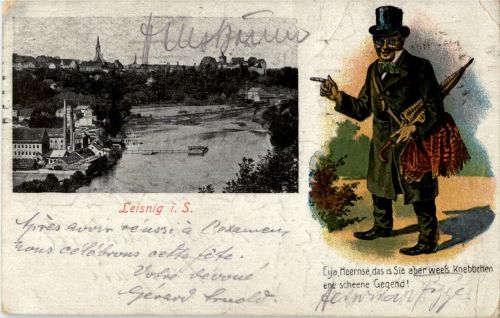 Leisnig i. S.
Après avoir réussi à l'examen,
nous célébrons cette fête.
Votre dévoué
Gérard Arnold.
Eija, Heernse, das is Sie aber weeß Knebbchen
ene scheene Gegend!